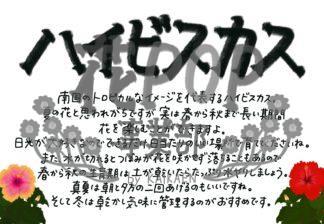 ハイビスカス
南国のトロピカルなイメージを代表するハイビスカス。
夏の花と思われがちですが実は春から秋まで長い期間
花を楽しむことができますよ。
日光が大好きなのでできるだけ日当たりのいい場所で育てて下さいね。
また水が切れるとつぼみが花を咲かせず落ちることもあるので
春から秋の生育期は土が乾いたらたっぷり水やりしましょう。
真夏は朝と夕方の二回あげるのもいいですね。
そして冬は乾かし気味に管理するのがおすすめです。
花POP